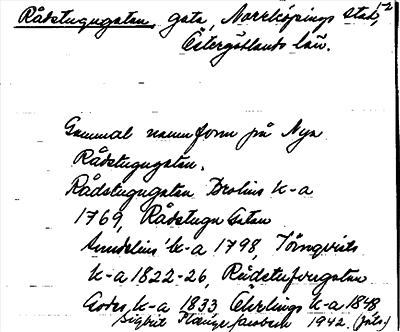 Rådstugugatan, gata, Norrköpings stad, 12
Östergötlands län.
Gammal namnform på Nya
Rådstugugatan.
Rådstugugatan Brolins k-a
1769, Rådstugu Gatan
Sundelius' k-a 1798, Törnqvists
k-a 1822-26, Rådstufvugatan
k-a 1833, Öhrlings k-a 1848
Sigbrit Plænge Jacobson 1942. (fots.)